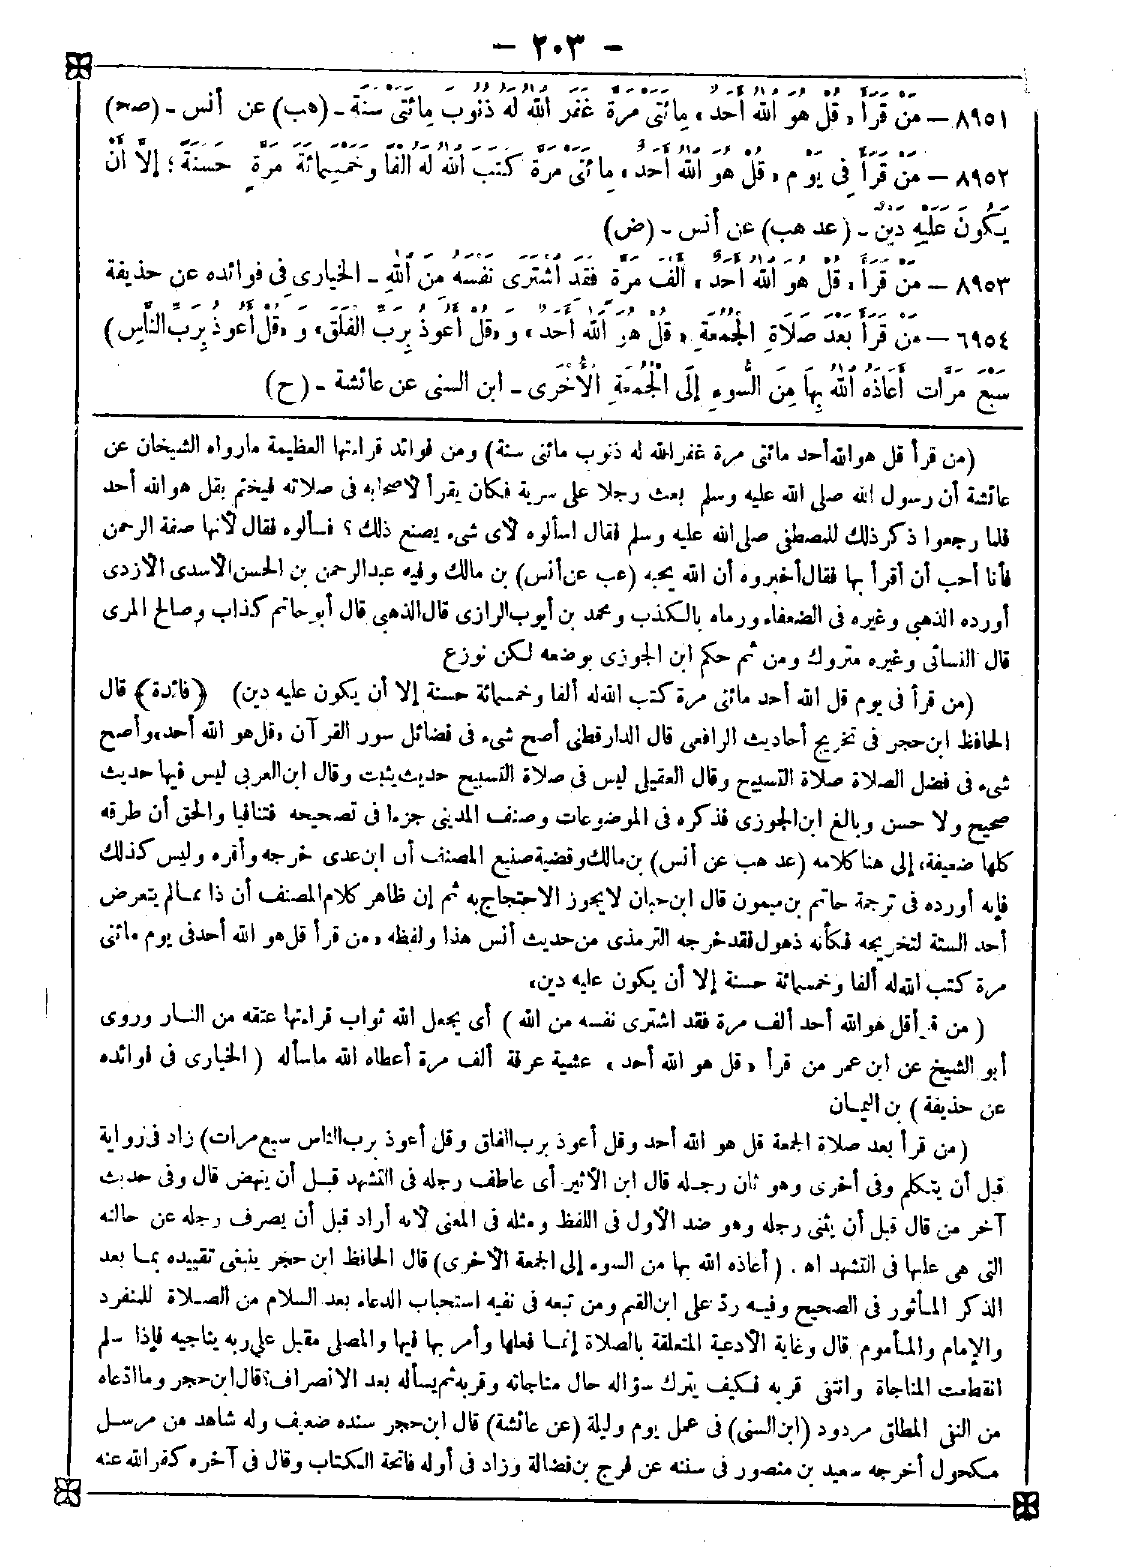 - ٢٠٣ -
٨٩٥١ - مَنْ قَرَأَ «قُلْ هُوَ اللهُ أَحَدٌ» مِائَتَىْ مَرَّةٍ غَفَرَ اللهُ لَهُ ذُنُوبَ مِائَتَىْ سَنَةٍ - (هب) عن أنس - (صح)
٨٩٥٢ - مَنْ قَرَأَ فِى يَوْمٍ «قُلْ هُوَ اللهُ أَحَدٌ» مِائَتَىْ مَرَّةٍ كَتَبَ اللهُ لَهُ أَلْفًا وَخَمْسَمِائَةِ مَرَّةٍ حَسَنَةً؛ إِلَّا أَنْ
يَكُونَ عَلَيْهِ دَيْنٌ - (عد هب) عن أنس - (ض)
٨٩٥٣ - مَنْ قَرَأَ «قُلْ هُوَ اللهُ أَحَدٌ» أَلْفَ مَرَّةٍ فَقَدِ اشْتَرَى نَفْسَهُ مِنَ اللهِ - الخيارى فى فوائده عن حذيفة
٦٩٥٤ - مَنْ قَرَأَ بَعْدَ صَلَاةِ الْجُمُعَةِ «قُلْ هُوَ اللهُ أَحَدٌ» وَ «قُلْ أَعُوذُ بِرَبِّ الْفَلَقِ» وَ «قُلْ أَعُوذُ بِرَبِّ النَّاسِ)
سَبْعَ مَرَّات أَعَاذَهُ اللهُ بِهَا مِنَ السُّوءِ إِلَى الْجُمُعَةِ الْأُخْرَى - ابن السنى عن عائشة - (ح)
(من قرأ قل هو الله أحد مائتى مرة غفر الله له ذنوب مائتى سنة) ومن فوائد قراءتها العظيمة مارواه الشيخان عن
عائشة أن رسول الله صلى الله عليه وسلم بعث رجلا على سرية فكان يقرأ لأصحابه فى صلاته فيختم بقل هو الله أحد
فلما رجعوا ذكر ذلك للمصطفى صلى الله عليه وسلم فقال اسألوه لأى شىء يصنع ذلك؟ فسألوه فقال لأنها صفة الرحمن
فأنا أحب أن أقرأ بها فقال أخبروه أن الله يحبه (عب عن أنس) بن مالك وفيه عبد الرحمن بن الحسن الأسدى الأزدى
أورده الذهبى وغيره فى الضعفاء ورماه بالكذب ومحمد بن أيوب الرازى قال الذهبى قال أبو حاتم كذاب وصالح المرى
قال النسائى وغيره متروك ومن ثم حكم ابن الجوزى بوضعه لكن نوزع
(من قرأ فى يوم قل الله أحد مائتى مرة كتب الله له ألفا وخمسمائة حسنة إلا أن يكون عليه دين) (فائدة) قال
الحافظ ابن حجر فى تخريج أحاديث الرافعى قال الدارقطنى أصح شىء فى فضائل سور القرآن «قل هو الله أحد» وأصح
شىء فى فضل الصلاة صلاة التسبيح وقال العقيلى ليس فى صلاة التسبيح حديث يثبت وقال ابن العربى ليس فيها حديث
صحيح ولا حسن وبالغ ابن الجوزى فذكره فى الموضوعات وصنف المدينى جزءا فى تصحيحه فتنافيا والحق أن طرقه
كلها ضعيفة، إلى هنا كلامه (عد هب عن أنس) بن مالك وقضية صنيع المصنف أن ابن عدى خرجه وأقره وليس كذلك
فإنه أورده فى ترجمة حاتم بن ميمون قال ابن حبان لا يجوز الاحتجاج به ثم إن ظاهر كلام المصنف أن ذا مما لم يتعرض
أحد الستة لتخريجه فكأنه ذهول فقد خرجه الترمذى من حديث أنس هذا ولفظه «من قرأ قل هو الله أحد فى يوم مائتى
مرة كتب الله له ألفا وخمسمائة حسنة إلا أن يكون عليه دين»
(من قرأ قل هو الله أحد ألف مرة فقد اشترى نفسه من الله) أى يجعل الله ثواب قراءتها عتقه من النار وروى
أبو الشيخ عن ابن عمر من قرأ «قل هو الله أحد» عشية عرفة ألف مرة أعطاه الله ماسأله (الخيارى فى فوائده
عن حذيفة) بن اليمان
(من قرأ بعد صلاة الجمعة قل هو الله أحد وقل أعوذ برب الفلق وقل أعوذ برب الناس سبع مرات) زاد فى رواية
قبل أن يتكلم وفى أخرى وهو ثان رجله قال ابن الأثير أى عاطف رجله فى التشهد قبل أن ينهض قال وفى حديث
آخر من قال قبل أن يثنى رجله وهو ضد الأول فى اللفظ ومثله فى المعنى لأنه أراد قبل أن يصرف رجله عن حالته
التى هى عليها فى التشهد اه. (أعاذه الله بها من السوء إلى الجمعة الأخرى) قال الحافظ ابن حجر ينبغى تقييده بما بعد
الذكر المأثور فى الصحيح وفيه رد على ابن القيم ومن تبعه فى نفيه استحباب الدعاء بعد السلام من الصلاة للمنفرد
والإمام والمأموم قال وغاية الأدعية المتعلقة بالصلاة إنما فعلها وأمر بها فيها والمصلى مقبل على ربه يناجيه فإذا سلم
انقطعت المناجاة وانتنى قربه فكيف يترك سؤاله حال مناجاته وقربه ثم يسأله بعد الانصراف؟ قال ابن حجر وما ادعاه
من النفى المطلق مردود (ابن السنى) فى عمل يوم وليلة (عن عائشة) قال ابن حجر سنده ضعيف وله شاهد من مرسل
مكحول أخرجه سعيد بن منصور فى سننه عن فرج بن فضالة وزاد فى أوله فاتحة الكتاب وقال فى آخره كفر الله عنه